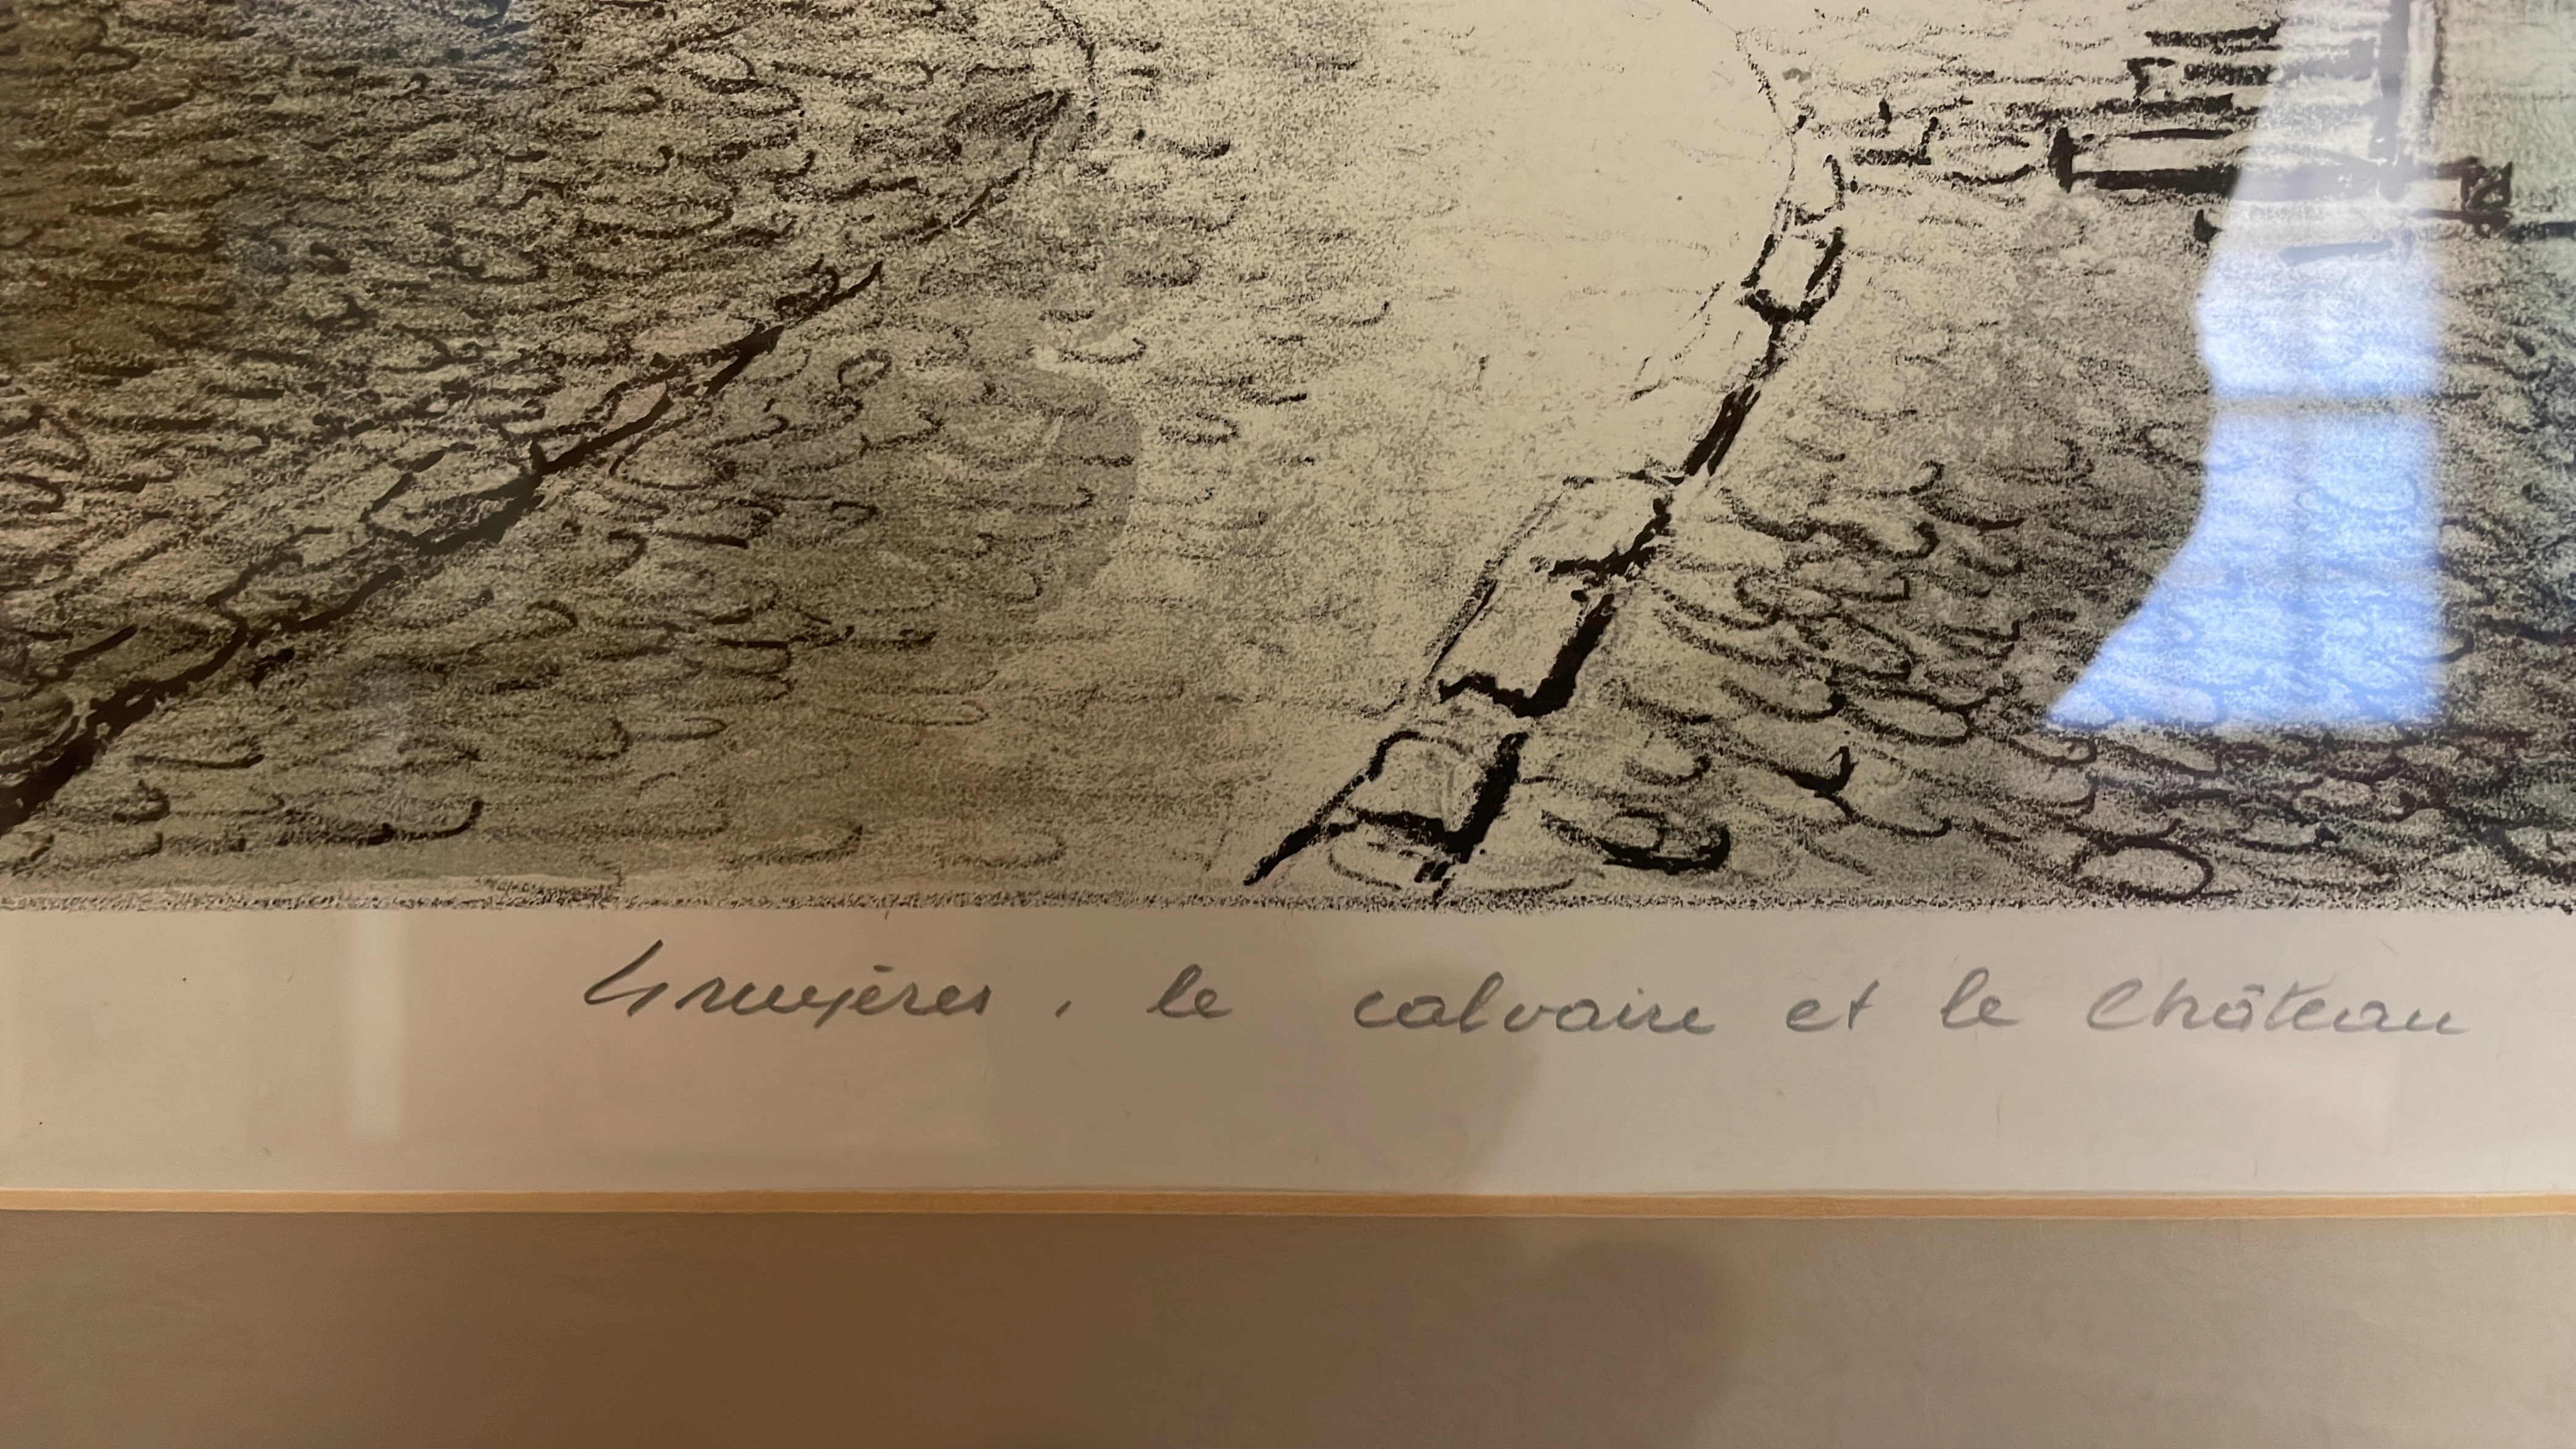 Gruyères, le calvaire et le Château